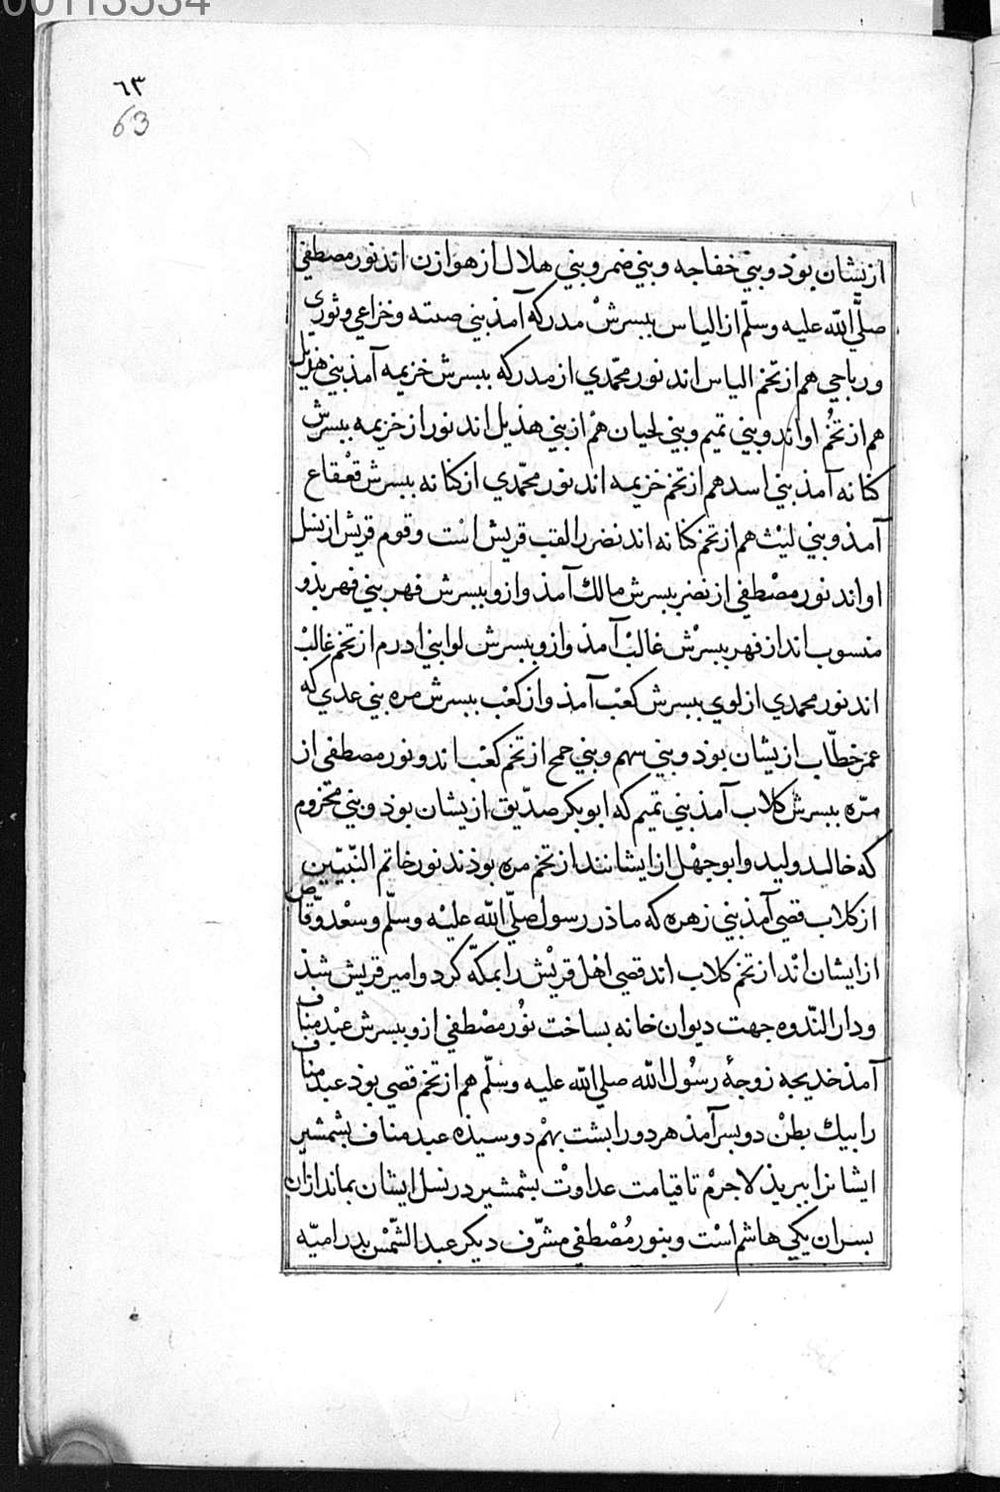 00113534
٦٣
63
ازیشان بوذ و بني خفاجه و بني ضمر و بني هلال از هوازن اند نور مصطفي
صلّي اللّه عليه وسلّم از الیاس ببسرش مدرکه آمذ بني ضبّه و خزاعي و ثوري
و رباحي هم از تخم الیاس اند نور محمّدي از مدرکه ببسرش خزیمه آمذ بني هذیل
هم از تخُم او اند و بني تمیم و بني لحیان هم از بني هذیل اند نور از خزیمه ببسرش
کنانه آمذ بني اسد هم از تخم خزیمه اند نور محمّدي از کنانه ببسرش قعْقاع
آمذ و بني لیْث هم از تخم کنانه اند نضر را لقب قریش اسْت و قوم قریش از نسل
او اند نور مصْطفي از نضر ببسرش مالك آمذ و ازو ببسرش فهر بني فهر بذو
منسوب اند از فهر ببسرْش غالبْ آمذ و ازو ببسرش لوا بني ادرم از تخم غالبْ
اند نور محمدي از لوي ببسرش کعْب آمذ و از کعْب ببسرش مره بني عدي که
عمر خطّاب ازیشان بوذ و بني سهم و بني جمح از تخم کعْب اند و نور مصطفي از
مرّه ببسرش کلاب آمذ بني تمیم که ابوبکر صدّیق ازیشان بوذ و بني مخزوم
که خالد ولید و ابوجهْل ازایشانند از تخم مره بوذند نور خاتم النّبیّین
از کلاب قصي آمذ بني زهره که ماذر رسول صلّي اللّه علیْه وسلّم و سعْد وقّاص
ازایشان انْد از تخم کلاب اند قصي اهْل قریْش را بمکّه کرد و امیر قریش شذ
و دار النّدوه جهت دیوان خانه بساخت نوُر مصْطفي ازو ببسرش عبْد مناف
آمذ خدیجه زوجهٔ رسُول اللّه صلي اللّه علیه وسلّم هم از تخم قصي بوذ عبد مناف
را بیك بطنْ دو بسر آمذ هر دو را بشت بهْم دوسیذه عبد مناف بشمشیر
ایشانرا ببریذ لاجرمْ تا قیامت عداوتْ بشمشیر در نسل ایشان بماند ازان
بسران یکي هاشم اسْت و بنور مُصْطفي مشرّف دیکر عبد الشّمْس بدر امیّه